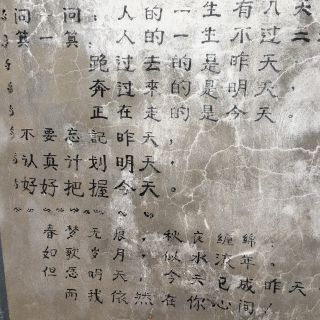 人的一生有几
人的一生不过天
跑过去的是昨天，
奔过來的是明天，
正在走的是今天。
不要忘記昨天，
认真計划明天，
好好把握今天。
春梦无，秋缠綿
如歌岁月，似水流年。
但明天，今天已成昨天
而我依然在你心间！